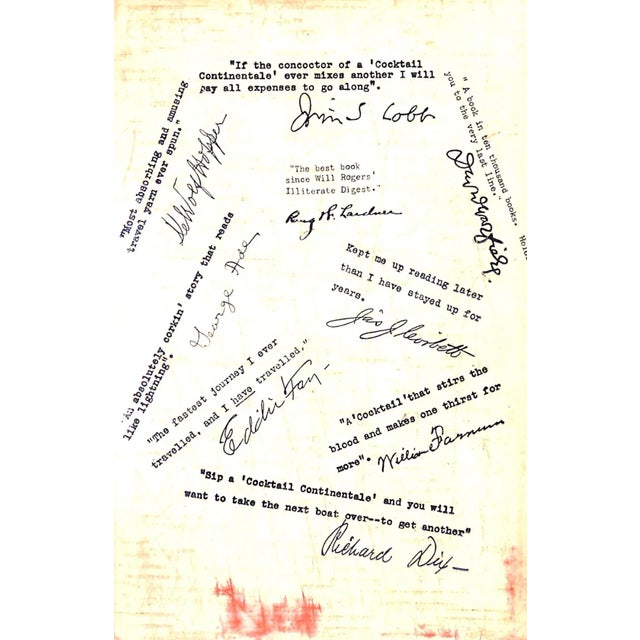 "If the concoctor of a 'Cocktail
Continentale' ever mixes another I will
pay all expenses to go along".
Cobb
"Most absorbing and amusing
travel yarn ever spun."
DeWolf Hopper
"The best book
since Will Rogers'
Illiterate Digest."
Ring W. Lardner
"A book in ten thousand books. Holds
you to the very last line."
David Warfield.
"An absolutely corkin' story that reads
like lightning".
George Ade
Kept me up reading later
than I have stayed up for
years.
Jas J Corbett
"The fastest journey I ever
travelled, and I have travelled."
Eddie Foy
"A 'Cocktail' that stirs the
blood and makes one thirst for
more".
William Farnum
"Sip a 'Cocktail Continentale' and you will
want to take the next boat over--to get another"
Richard Dix